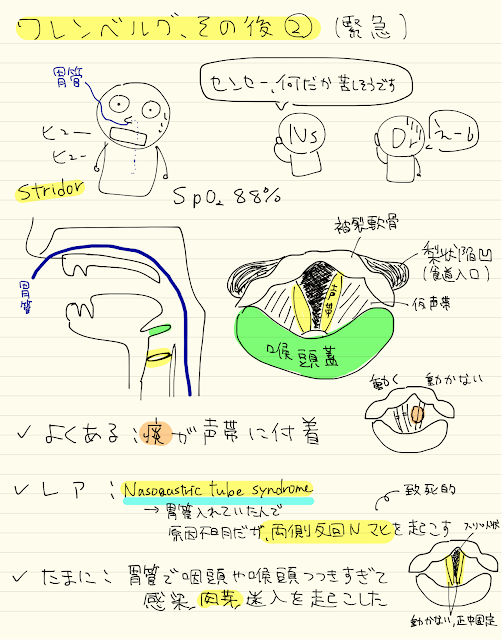 ワレンベルグ、その後② (緊急)
胃管
センセー、何だか苦しそうです
ヒュー
ヒュー
Ns
Dr
えーっ
stridor
SpO2 88%
被裂軟骨
梨状陥凹
(食道入口)
仮声帯
声帯
胃管
喉頭蓋
動く 動かない
✓ よくある:痰が声帯に付着
✓ レア:Nasogastric tube syndrome
致死的
→ 胃管入れていたんで
原因不明だが、両側反回Nマヒを起こす
スリット状
✓ たまに:胃管で咽頭や喉頭つつきすぎて
感染、肉芽、迷入を起こした
動かない、正中固定